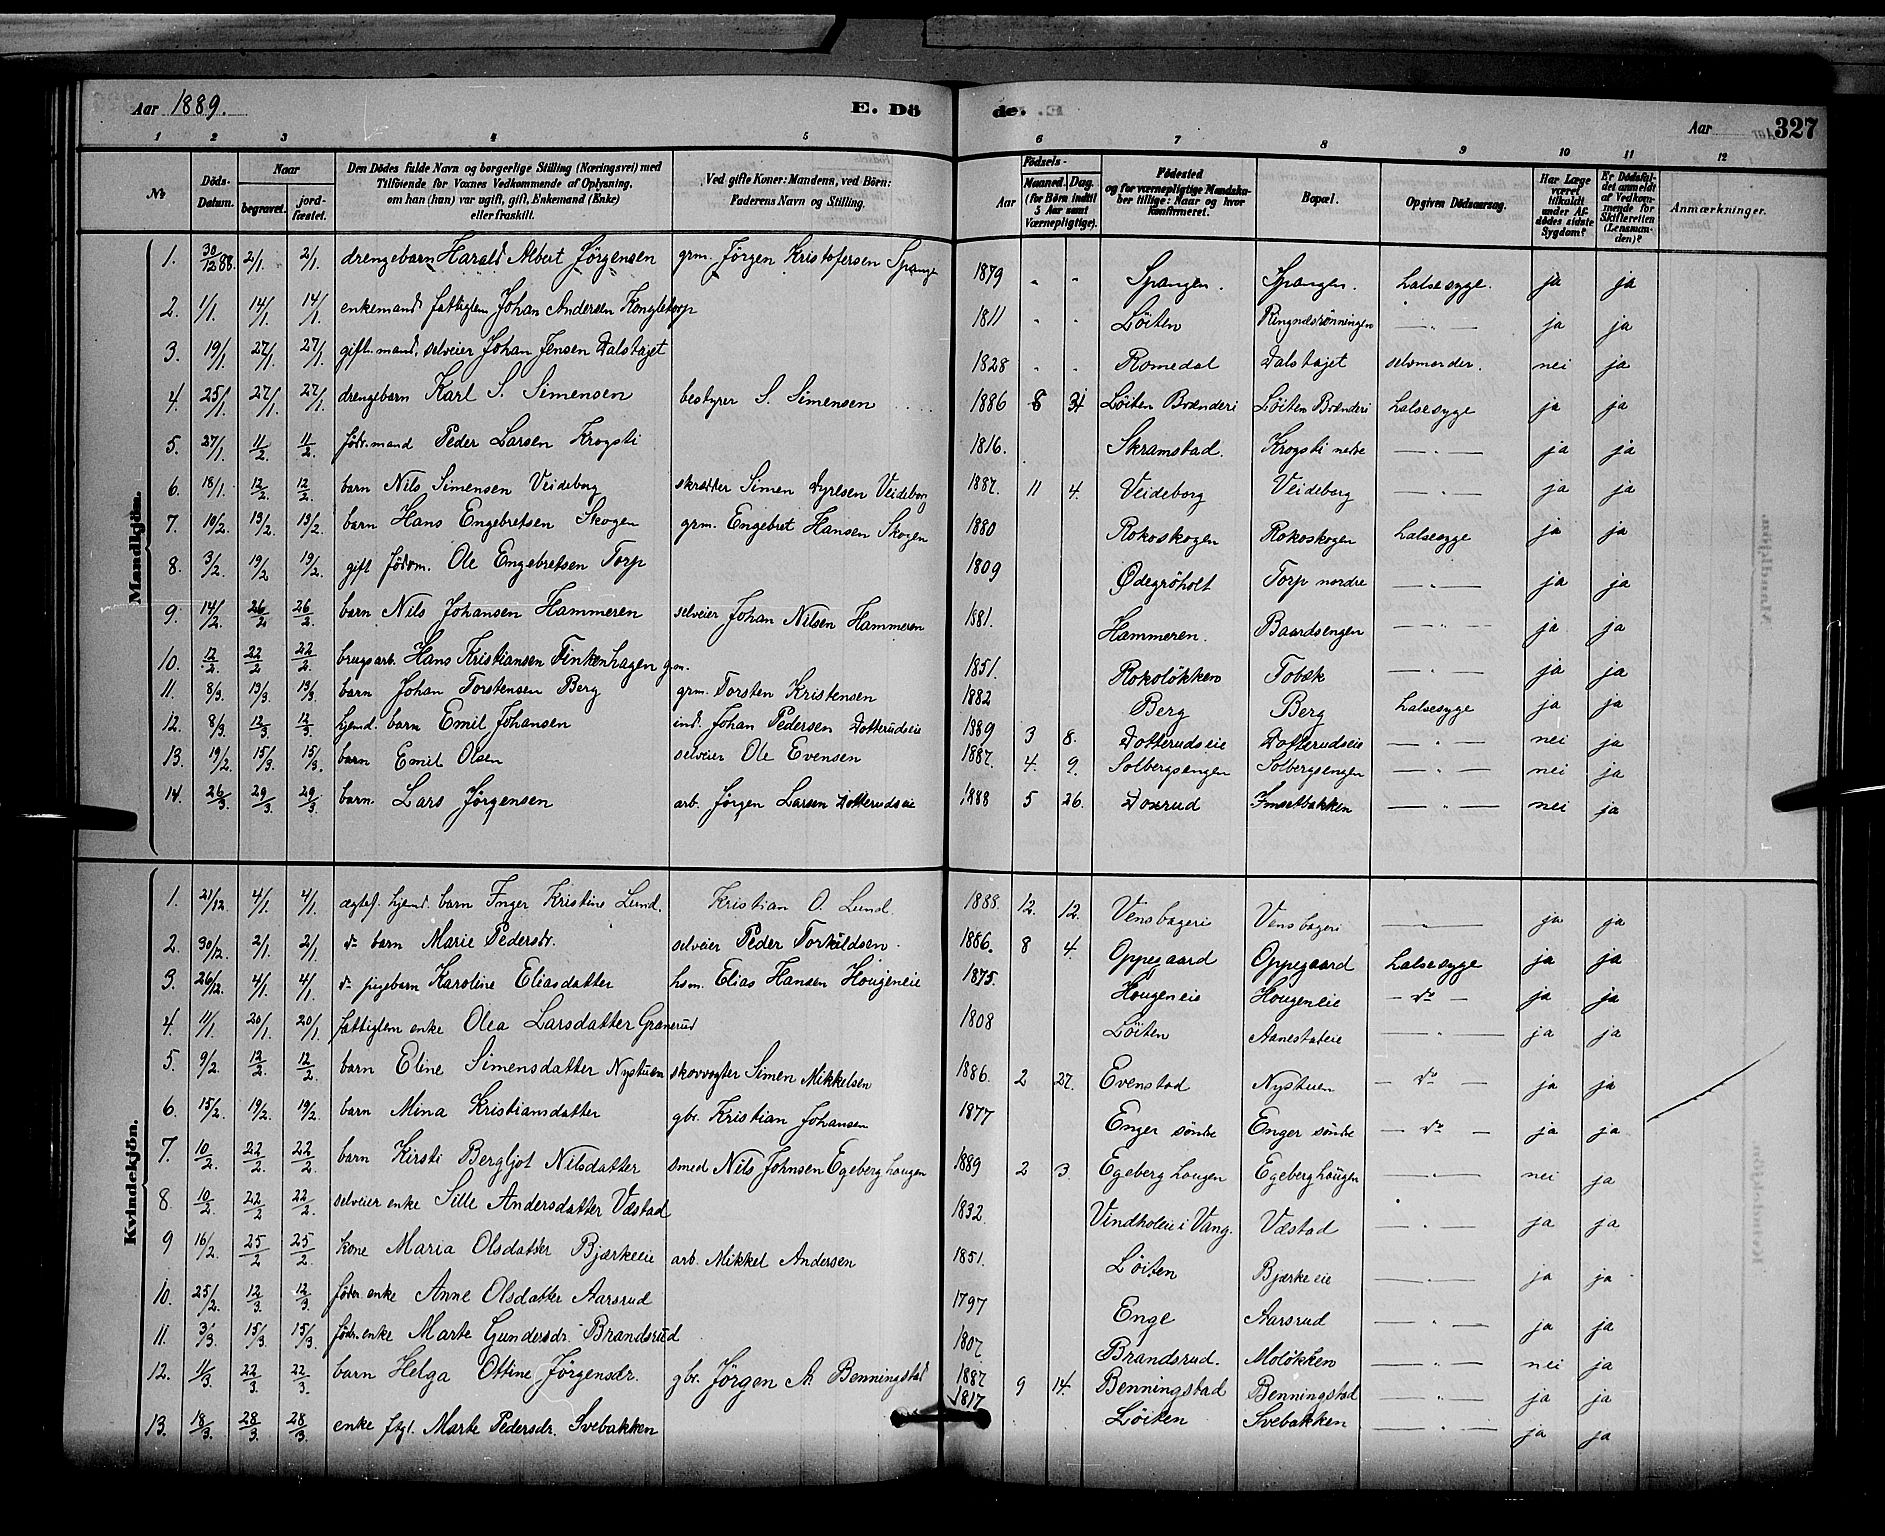 Aar 1889. E. Dö de. Aar 327
1 2 3 4 5 6 7 8 9 10 11 12
№ Döds-Datum. Naar begravet. jord-fæstet. Den Dödes fulde Navn og borgerlige Stilling (Næringsvei) med Tilföiende for Voxnes Vedkommende af Oplysning, om han (hun) var ugift, gift, Enkemand (Enke) eller fraskilt. Ved gifte Koner: Mandens, ved Börn: Faderens Navn og Stilling. Födsels- Aar Maaned. Dag. (for Börn indtil 5 Aar samt Værnepligtige). Födested og for værnepligtige Mandska-ber tillige: Naar og hvor konfirmeret. Bopæl. Opgiven Dödsaarsag. Har Læge været tilkaldt under Af-dödes sidste Sygdom? Er Dödsfal-det anmeldt af Vedkom-mende for Skifteretten (Lensman-den)? Anmærkninger.
Mandkjön.
1. 30/12 88. 2/1. 2/1. drengebarn Harald Albert Jørgensen grm. Jörgen Kristofersen Spangen 1879 " " Spangen. Spangen. Halsesyge. ja ja
2. 1/1. 14/1 14/1 enkemand fattiglem Johan Andersen Kongletorp 1811 " " Löiten Ringnæsrönningen — " — ja ja
3. 19/1 27/1 27/1 gift. mand, selveier Johan Jensen Dalstajet 1828 " " Romedal Dalstajet selvmorder. nei ja
4. 25/1 27/1 27/1 drengebarn Karl S. Simensen bestyrer S. Simensen 1886 8 31 Löiten Brænderi Löiten Brænderi Halsesyge ja ja
5. 27/1 11/2 11/2 föder.mand Peder Larsen Krogsti 1816. Skramstad. Krogsti nedre — " — ja ja
6. 18/1. 12/2. 12/2. barn Nils Simensen Veideborg skrædder Simen Dyresen Veideborg 1887. 11 4. Veideborg Veideborg — " — ja ja
7. 10/2. 19/2 19/2. barn Hans Engebretsen Skogen grm. Engebret Hansen Skogen 1880 Rokoskogen Rokoskogen Halsesyge ja ja
8. 3/2. 19/2 19/2. gift föderm. Ole Engebretsen Torp 1809 Ødegröholt Torp nordre — " — ja ja
9. 14/2. 26/2 26/2 barn Nils Johansen Hammeren selveier Johan Nilsen Hammeren 1881. Hammeren. Baardsengen — " — ja ja
10. 12/2. 22/2 22/2 brugsarb. Hans Kristiansen Finkenhagen grm. 1851. Rokolökken Tobæk — " — ja ja
11. 8/3. 19/3. 19/3. barn Johan Torstensen Berg grm. Torsten Kristensen 1882 Berg Berg Halsesyge ja ja
12. 8/3. 12/3 12/3 hjemd. barn Emil Johansen ind. Johan Pedersen Dotterudseie 1889 3 8. Dotterudseie Dotterudseie — " — nei ja
13. 19/2. 15/3. 15/3. barn Emil Olsen selveier Ole Evensen 1887. 4. 9. Solbergsengen Solbergsengen — " — nei ja
14. 26/3 29/3 29/3. barn. Lars Jørgensen arb. Jørgen Larsen Dotterudseie 1888 5 26. Doxrud Imsetbakken — " — nei ja
Kvindekjön.
1. 21/12. 4/1. 4/1. ægtef. hjemd. barn Inger Kristine Lund. Kristian O. Lund. 1888. 12. 12. Vensbageri Vensbageri — " — ja ja
2. 30/12. 2/1. 2/1. do barn Marie Pedersdr. selveier Peder Torkildsen. 1886. 8 4. Oppegaard Oppegaard Halsesyge ja ja
3. 26/12. 4/1. 4/1. do pigebarn Karoline Eliasdatter hsm. Elias Hansen Hougeneie 1875. Hougeneie Hougeneie — do — ja ja
4. 11/1 20/1 20/1 fattiglem enke Olea Larsdatter Granerud 1808 Löiten Aanestadeie — " — ja ja
5. 9/2. 12/2 12/2. barn Eline Simensdatter Nystuen skovvogter Simen Mikkelsen 1886. 2 27. Evenstad Nystuen — do — ja ja
6. 15/2. 19/2. 19/2. barn Mina Kristiansdatter gbr. Kristian Johansen 1877 Enger söndre Enger söndre — do — ja ja
7. 10/2. 22/2 22/2 barn Kirsti Bergljot Nilsdatter smed Nils Johnsen Egeberg Haugen 1889 2 3. Egeberg haugen Egeberghaugen — " — nei ja
8. 10/2. 22/2 22/2 selveier enke Sille Andersdatter Væstad 1832. Vindholeie i Vang. Væstad — " — ja ja
9 16/2. 25/2 25/2 kone Maria Olsdatter Bjærkeeie arb. Mikkel Andersen 1851. Löiten Bjærkeeie — " — ja ja
10. 25/2. 12/3 12/3 föder. enke Anne Olsdatter Aarsrud 1797 Enge Aarsrud — " — ja ja
11. 3/3. 15/3 15/3 föder. enke Marte Gundersdr. Brandsrud 1807 Brandsrud. Molökken — " — nei ja
12. 11/3 22/3. 22/3. barn Helga Ottine Jörgensdr. gbr. Jörgen A. Benningstad 1887 9 14. Benningstad Benningstad — " — ja ja
13. 18/3 28/3. 28/3. enke ftgl. Marte Pedersdr. Svebakken 1817 Löiten Svebakken — " — ja ja